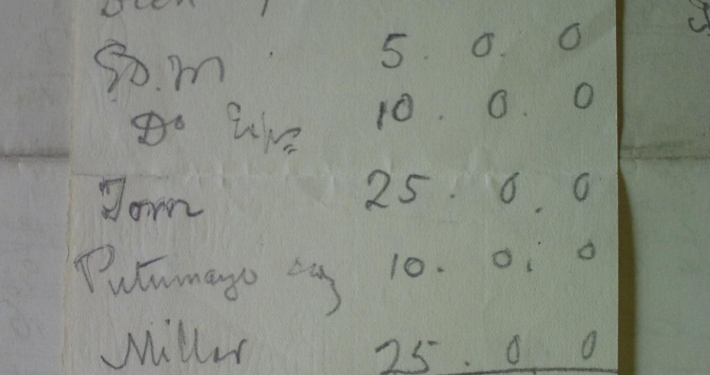 E.D.M 5. 0. 0
Do Exps 10. 0. 0
Tom 25. 0. 0
Putumayo 10. 0. 0
Millar 25. 0 0